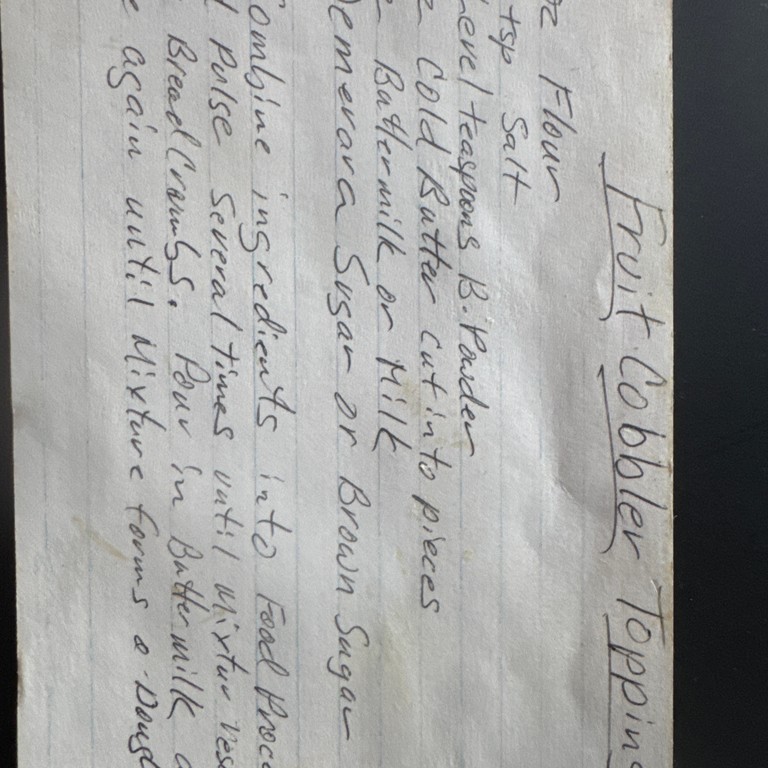 Fruit Cobbler Topping
oz Flour
tsp Salt
level teaspoons B. Powder
Cold Butter cut into pieces
Buttermilk or Milk
Demerara Sugar or Brown Sugar
Combine ingredients into Food Proce
pulse several times until mixtur res
BreadCrombs. Pour in Buttermilk
again until Mixture forms a Dough